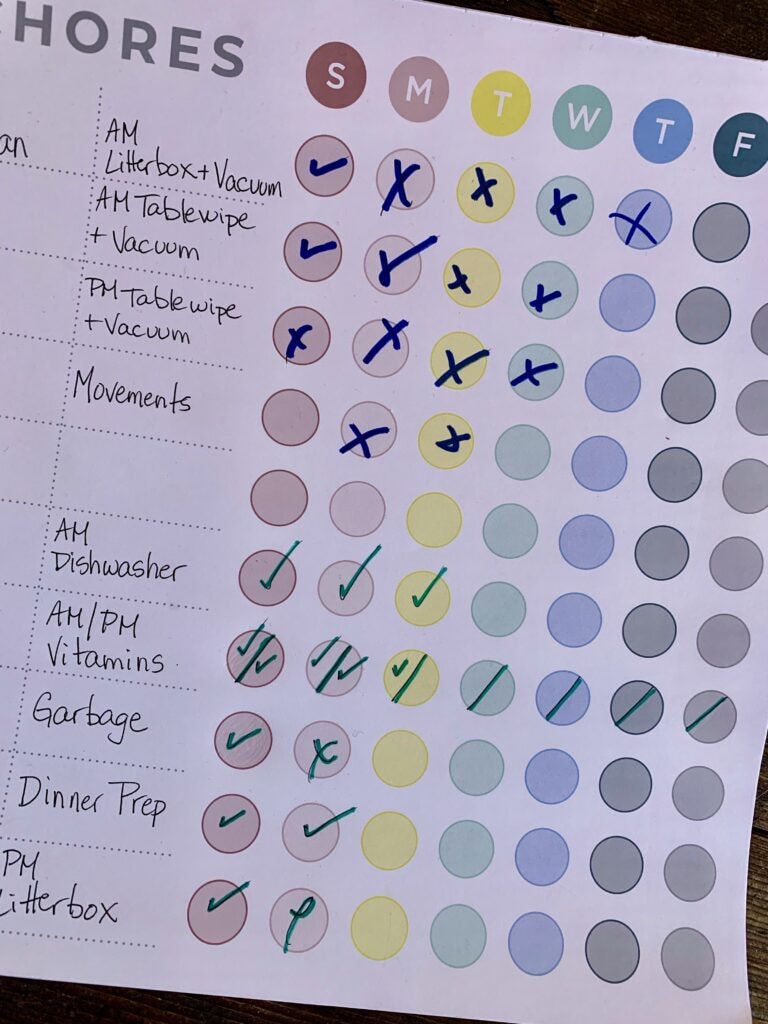 CHORES
S M T W T F
AM
Litterbox + Vacuum
AM Tablewipe
+ Vacuum
PM Tablewipe
+ Vacuum
Movements
AM
Dishwasher
AM/PM
Vitamins
Garbage
Dinner Prep
PM
Litterbox